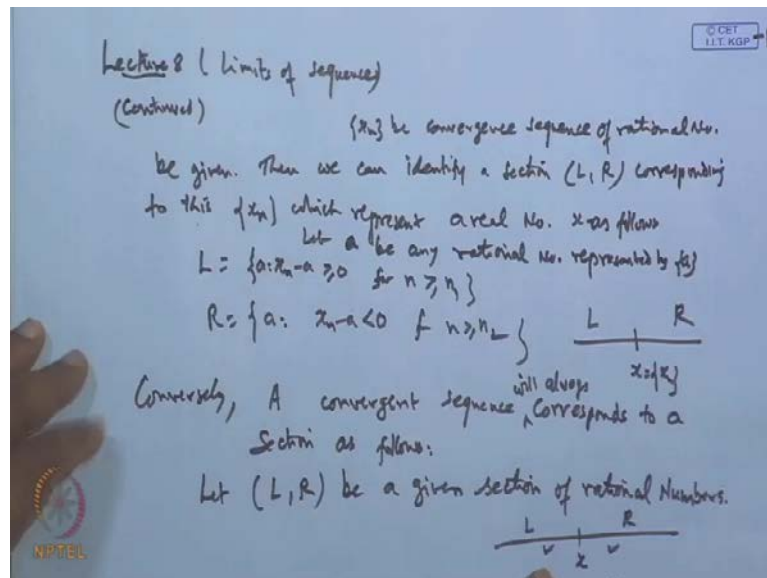 © CET
I.I.T. KGP
Lecture 8 ( Limits of sequence)
(Continued)
{xn} be convergence sequence of rational No.
be given. Then we can identify a section (L, R) corresponding
to this {xn} which represent a real No. x as follows
Let a be any rational No. represented by {a}
L = {a: xn-a ≥0 for n ≥ n1}
R = {a: xn-a <0 f n ≥ n2}
L R
x={xn}
Conversely, A convergent sequence will always corresponds to a
Section as follows:
Let (L, R) be a given section of rational Numbers.
L R
x
NPTEL